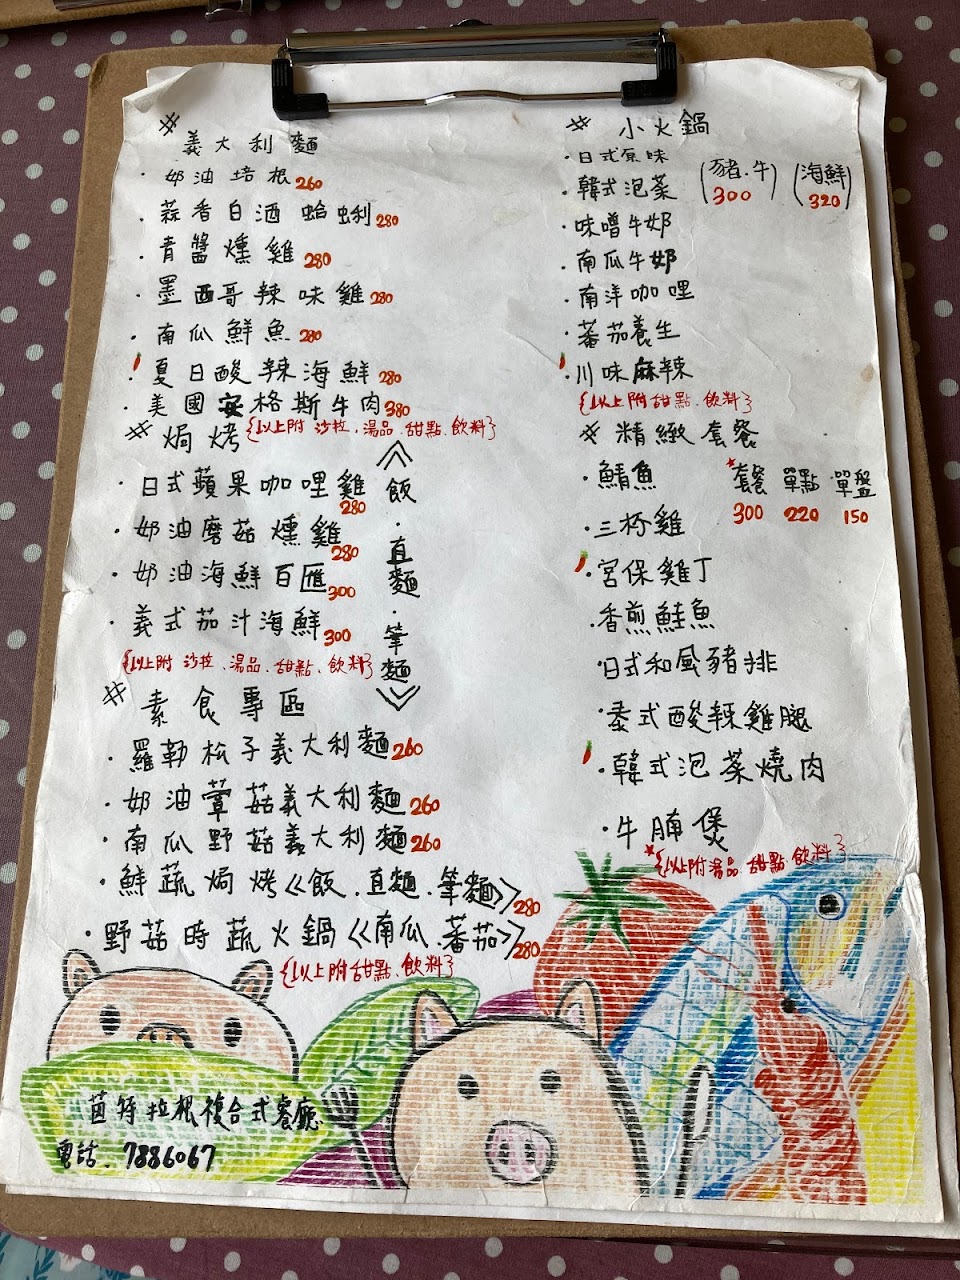 # 義大利麵
·奶油培根260
·蒜香白酒蛤蜊280
·青醬燻雞280
·墨西哥辣味雞280
·南瓜鮮魚280
·夏日酸辣海鮮280
·美國安格斯牛肉380
{以上附沙拉、湯品、甜點、飲料}
# 焗烤
《飯·直麵·筆麵》
·日式蘋果咖哩雞280
·奶油磨菇燻雞280
·奶油海鮮百匯300
·義式茄汁海鮮300
{以上附沙拉、湯品、甜點、飲料}
# 素食專區
·羅勒松子義大利麵260
·奶油蕈菇義大利麵260
·南瓜野菇義大利麵260
·鮮蔬焗烤《飯、直麵、筆麵》280
·野菇時蔬火鍋《南瓜、蕃茄》280
{以上附甜點、飲料}
# 小火鍋
(豬·牛) (海鮮)
300 320
·日式原味
·韓式泡菜
·味噌牛奶
·南瓜牛奶
·南洋咖哩
·蕃茄養生
·川味麻辣
{以上附甜點、飲料}
# 精緻套餐
*套餐 單點 單盤
300 220 150
·鯖魚
·三杯雞
·宮保雞丁
·香煎鮭魚
·日式和風豬排
·泰式酸辣雞腿
·韓式泡菜燒肉
·牛腩煲
*{以上附湯品、甜點、飲料}
茵特拉根複合式餐廳
電話.7886067